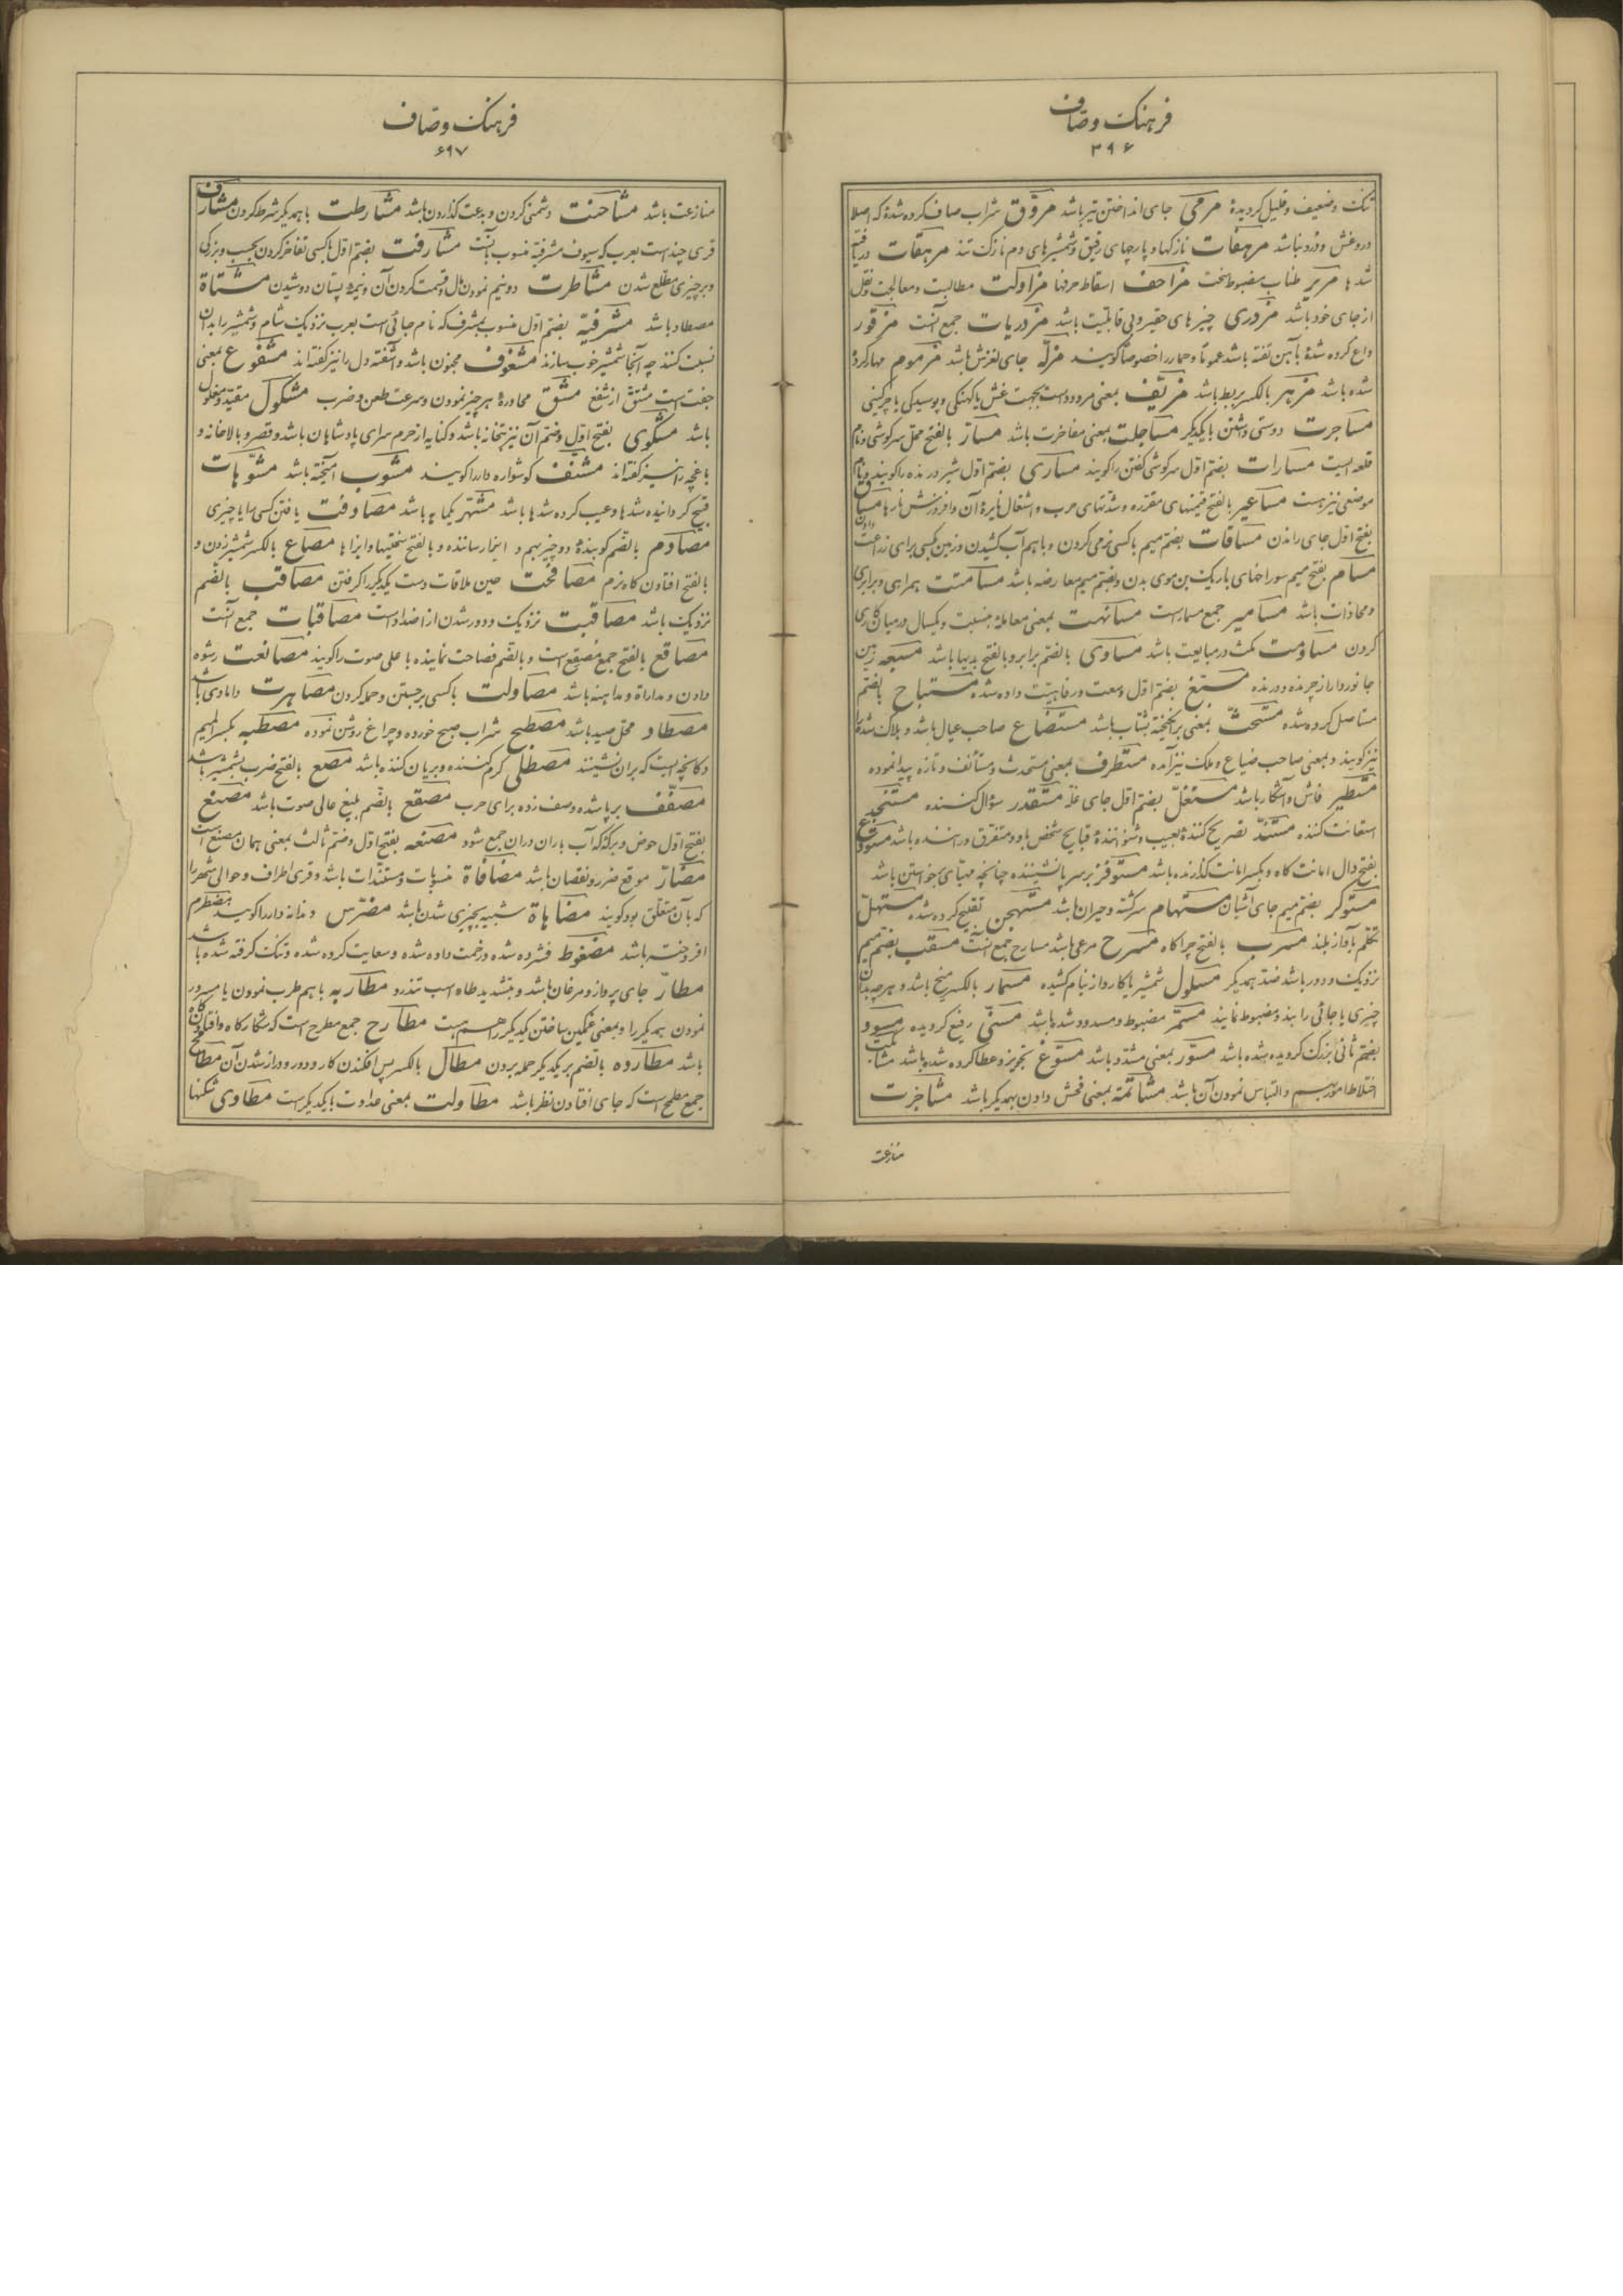 فرهنک وصاف
۳۹۶
تنک وضعیف وقلیل کردیدهٔ مرمی جای انداختن تیر باشد مروّق شراب صاف کرده شدهٔ که اصلا
در و غش و درد نباشد مرهفات نازکها و پارچهای رقیق و شمشیرهای دم نازک تند مرهقات دریافته
شدها مریر طناب مضبوط سخت مزاحف اسقاط حرفها مزاولت مطالبت و معالجت و نقل
از جای خود باشد مزدری چیزهای حقیر و بی قابلیت باشد مزدریات جمع آنست مزقور
داغ کرده شدهٔ بآهن تفته باشد عموماً و حمار را خصوصاً کویند مزلّه جای لغزش باشد مزموم مهار کردهٔ
شده باشد مزهر بالکسر بربط باشد مزیّف بمعنی مردود است بجهت غش یا کهنکی و پوسیدکی یا چرکینی
مساجرت دوستی داشتن با یکدیکر مساجلت بمعنی مفاخرت باشد مسارّ بالفتح محل سرکوشی و نام
قلعه ایست مسارات بضم اول سرکوشی کفتن را کویند مساری بضم اول شیر درنده را کویند و نام
موضعی نیز هست مساعیر بالفتح قیمتهای مقرره و شدتهای حرب و اشتغال نایرهٔ آن و افروزش نارها مساق
بفتح اول جای راندن مساقات بضم میم با کسی نرمی کردن و با هم آب کشیدن و زمین بکسی برای زراعت دادن
مسام بفتح میم سوراخهای باریک بن موی بدن و بضم میم معارضه باشد مسامتت همراهی و برابری
و محاذات باشد مسامیر جمع مسمار است مسانهت بمعنی معامله بنسبت و یکسال در میان کاری
کردن مساومت مکث در مبایعت باشد مساوی بالضم برابر و بالفتح بدیها باشد مسبعه زمین
جانوردار از چرنده و درنده مسبّغ بضم اول وسعت و رفاهیت داده شده مستباح بالضم
مستاصل کرده شده مستحثّ بمعنی برانکیخته بشتاب باشد مستضاع صاحب عیال باشد و هلاک شده را
نیز کویند و بمعنی صاحب ضیاع و ملک نیز آمده مستطرف بمعنی مستحدث و مستأنف و تازه پیدا نموده
مستطیر فاش و آشکار باشد مستغلّ بضم اول جای غلّه مستقدر سؤال کننده مستنجد
استعانت کننده مستندّ تصریح کنندهٔ بعیب و شنوانندهٔ قبایح شخص باو و متفرق و رماننده باشد مستودع
بفتح دال امانت کاه و بکسر امانت کذارنده باشد مستوفز بر سر پا نشیننده چنانچه مهیای برخواستن باشد
مستوکر بضم میم جای آشیان مستهام سرکشته و حیران باشد مستهجن تقبیح کرده شده مستهلّ
تکلم بآواز بلند مسرب بالفتح چراکاه مسرح مرعی باشد مسارح جمع آنست مسقب بضم میم
نزدیک و دور باشد ضد همدیکر مسلول شمشیر یا کارد از نیام کشیده مسمار بالکسر میخ باشد و هر چه بدان
چیزی یا جائی را بند و مضبوط نمایند مسمّر مضبوط و مسدود شده باشد مسنّی رفیع کردیده مسود
بضم ثانی بزرک کردیده شده باشد مسوّر بمعنی مشدّد باشد مسوّغ تجویز و عطا کرده شده باشد مشابکت
اختلاط امور بهم و التباس نمودن آن باشد مشاتمه بمعنی فحش دادن بهمدیکر باشد مشاجرت
منازعت
فرهنک وصاف
۶۹۷
منازعت باشد مشاحنت دشمنی کردن و بدعت کذاردن باشد مشارطت با همدیکر شرط کردن مشارف
قری چند است بعرب که سیوف مشرفیّه منسوب بآنست مشارفت بضم اول با کسی تفاخر کردن بحسب و بزرکی
و بر چیزی مطّلع شدن مشاطرت دو نیم نمودن مال و قسمت کردن آن و نیمهٔ پستان دوشیدن مشتاة
مصطاد باشد مشرفیّه بضم اول منسوب بمشرف که نام جائی است بعرب نزدیک شام و شمشیر را بدان
نسبت کنند چه آنجا شمشیر خوب سازند مشغوف مجنون باشد و آشفته دل را نیز کفته اند مشفوع بمعنی
جفت است مشتق از شفع مشق محاورهٔ هر چیز نمودن و سرعت طعن و ضرب مشکول مقیّد و مغلول
باشد مشکوی بفتح اول و ضم آن نیز بتخانه باشد و کنایه از حرم سرای پادشاهان باشد و قصر و بالاخانه و
باغچه را نیز کفته اند مشنّف کوشواره دار را کویند مشوب آمیخته باشد مشوّهات
قبیح کردانیده شدها و عیب کرده شدها باشد مشتهر یکماهه باشد مصادفت یافتن کسی را یا چیزی
مصادم بالضم کوبندهٔ دو چیز بهم و ایثار رسانده و بالفتح سختیها و ایذاها مصاع بالکسر شمشیر زدن و
بالفتح افتادن کاه نرم مصافحت حین ملاقات دست یکدیکر را کرفتن مصاقب بالضم
نزدیک باشد مصاقبت نزدیک و دور شدن از اضداد است مصاقبات جمع آنست
مصاقع بالفتح جمع مصقع است و بالضم فصاحت نماینده با علی صوت را کویند مصانعت رشوه
دادن و مداراة و مداهنه باشد مصاولت با کسی برجستن و حمله کردن مصاهرت دامادی باشد
مصطاد محل صید باشد مصطبح شراب صبح خورده و چراغ روشن نموده مصطبه بکسر المیم
دکانچه ایست که بر آن نشینند مصطلی کرم کننده و بریان کننده باشد مصع بالفتح ضرب بشمشیر باشد
مصفّف بر پا شده و صف زده برای حرب مصقع بالضم بلیغ عالی صوت باشد مصنع
بفتح اول حوض و برکهٔ که آب باران در آن جمع شود مصنعه بفتح اول و ضم ثالث بمعنی همان مصنع است
مضارّ موقع ضرر و نقصان باشد مضافاة منسوبات و مستندات باشد و قری اطراف و حوالی شهر را
که بآن متعلق بود کویند مضاهاة شبیه بچیزی شدن باشد مضرّس دندانه دار را کویند مضطرم
افروخته باشد مضغوط فشرده شده و زحمت داده شده و سعایت کرده شده و تنک کرفته شده باشد
مطارّ جای پرواز و مرغان باشد و بتشدید طاء اسب تندرو مطاربه با هم طرب نمودن یا مسرور
نمودن همدیکر را و بمعنی غمکین ساختن یکدیکر را هم هست مطارح جمع مطرح است که شکارکاه و افکندن کاه
باشد مطارده بالضم بر یکدیکر حمله بردن مطال بالکسر پس افکندن کار و دور و دراز شدن آن مطامح
جمع مطمح است که جای افتادن نظر باشد مطاولت بمعنی عداوت با یکدیکر است مطاوی شکنها